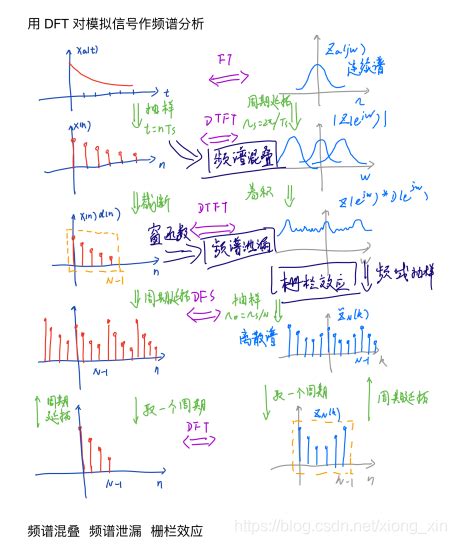 用 DFT 对模拟信号作频谱分析
Xa(t)
FT
Xa(jw)
连续谱
t
Ω
抽样
t=nTs
DTFT
周期延拓
Ωs=2π/Ts
X(n)
|X(e^jw)|
频谱混叠
n
w
截断
卷积
X(n)d(n)
DTFT
X(e^jw)*D(e^jw)
窗函数
频谱泄漏
N-1
n
栅栏效应
频域抽样
周期延拓
DFS
抽样
离散谱
X̃N(k)
N-1
n
N-1
k
周期
延拓
取一个周期
DFT
取一个周期
周期延拓
XN(k)
N-1
n
N-1
n
频谱混叠 频谱泄漏 栅栏效应
https://blog.csdn.net/xiong_xin